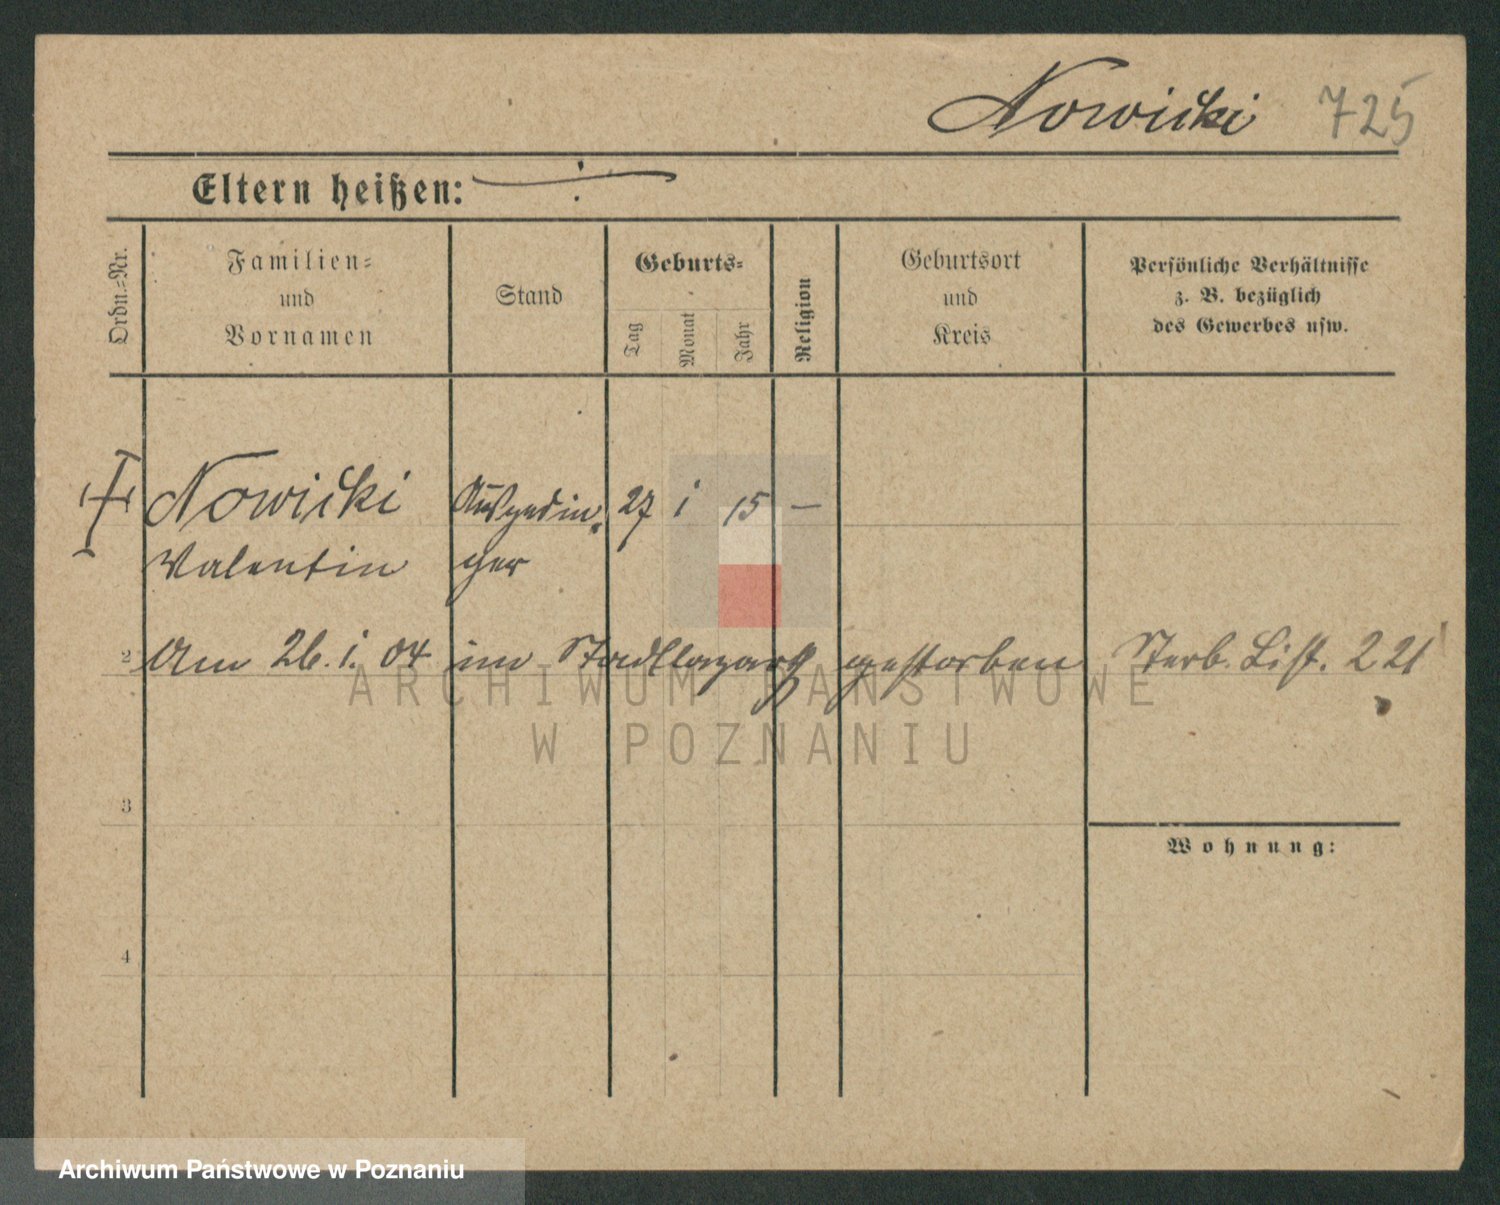 Nowicki 725
Eltern heißen: ·/·
Ordn.=Nr.
Familien=
und
Vornamen
Stand
Geburts=
Tag
Monat
Jahr
Religion
Geburtsort
und
Kreis
Persönliche Verhältnisse
z. B. bezüglich
des Gewerbes usw.
Nowicki Ausgedin= 27 i 15 —
Valentin ger
2 Am 26. i. 04 im Stadtlazareth gestorben Sterb. List. 221
ARCHIWUM PAŃSTWOWE
W POZNANIU
3
Wohnung:
4
Archiwum Państwowe w Poznaniu